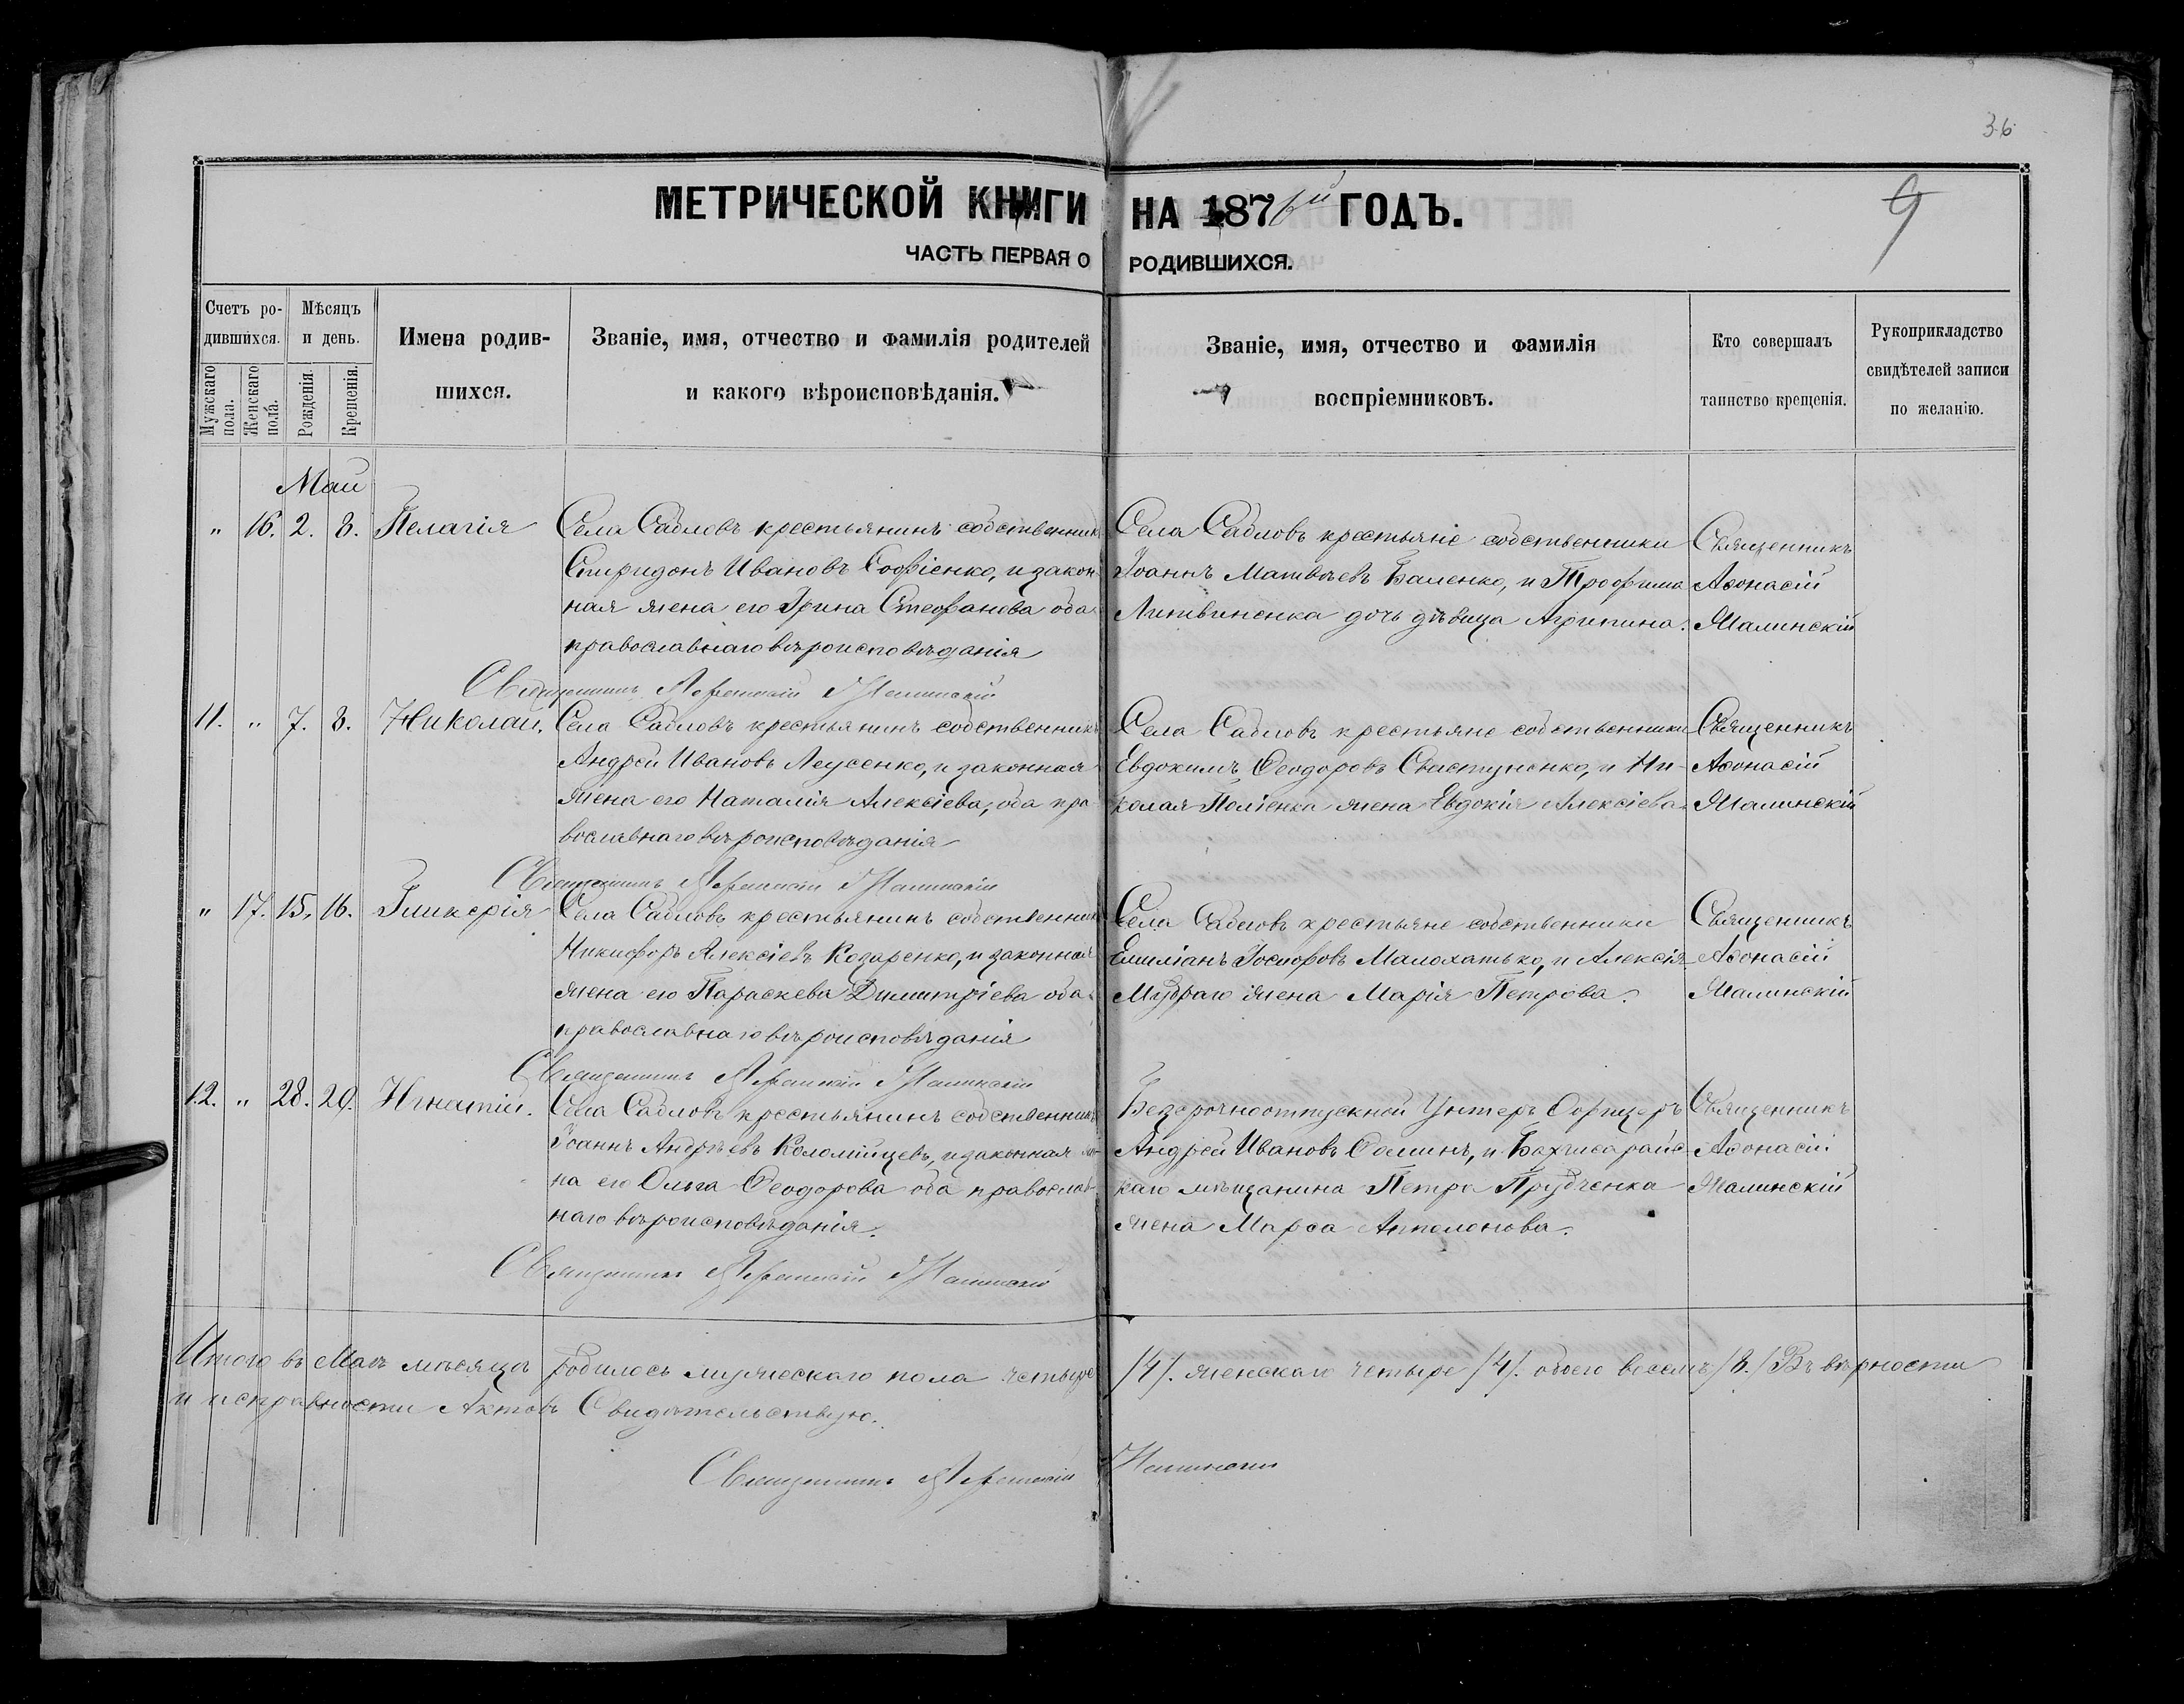 36
МЕТРИЧЕСКОЙ КНИГИ НА 1876й ГОДЪ.
9
ЧАСТЬ ПЕРВАЯ О РОДИВШИХСЯ.
Счетъ ро-дившихся.
Мужскаго пола.
Женскаго пола.
Мѣсяцъ и день.
Рожденія.
Крещенія.
Имена родив-шихся.
Званіе, имя, отчество и фамилія родителей и какого вѣроисповѣданія.
Званіе, имя, отчество и фамилія воспріемниковъ.
Кто совершалъ таинство крещенія.
Рукоприкладство свидѣтелей записи по желанію.
Май
„ 16. 2. 3. Пелагія
Села Садловъ крестьянинъ собственникъ
Спиридонъ Ивановъ Софіенко, и закон-
ная жена его Ірина Стефанова оба
православнаго вѣроисповѣданія
Села Садловъ крестьяне собственники
Іоаннъ Матвѣевъ Баленко, и Трофима
Литвиненка дочь дѣвица Агрипина.
Священникъ
Аѳонасій
Малинскій
Священникъ Аѳанасій Малинскій
11. „ 7. 8. Николай.
Села Садловъ крестьянинъ собственникъ
Андрей Ивановъ Леусенко, и законная
жена его Наталія Алексіева, оба пра-
вославнаго вѣроисповѣданія
Села Садловъ крестьяне собственники
Евдокимъ Ѳеодоровъ Свистуненко, и Ни-
колая Поліенка жена Евдокія Алексіева.
Священникъ
Аѳонасій
Малинскій
Священникъ Аѳанасій Малинскій
„ 17. 15. 16. Гликерія
Села Садловъ крестьянинъ собственникъ
Никифоръ Алексіевъ Козаренко, и законная
жена его Параскева Димитріева оба
православнаго вѣроисповѣданія
Села Садловъ крестьяне собственники
Емиліанъ Іосифовъ Малохатько, и Алексія
Мудраго жена Марія Петрова.
Священникъ
Аѳонасій
Малинскій
Священникъ Аѳанасій Малинскій
12. „ 28. 29. Игнатій.
Села Садловъ крестьянинъ собственникъ
Іоаннъ Андрѣевъ Коломійцевъ, и законная же-
на его Ольга Ѳеодорова оба православ-
наго вѣроисповѣданія.
Безсрочноотпускной Унтеръ Офицеръ
Андрей Ивановъ Ѳоминъ, и Бахчисарайс-
каго мѣщанина Петра Прудченка
жена Марѳа Апполонова.
Священникъ
Аѳонасій
Малинскій
Священникъ Аѳанасій Малинскій
Итого въ Маѣ мѣсяцѣ родилось мужескаго пола четыре /4/. женскаго четыре /4/. обоего восемь /8./ Въ вѣрности
и исправности Актовъ Свидѣтельствую.
Священникъ Аѳанасій Малинскій